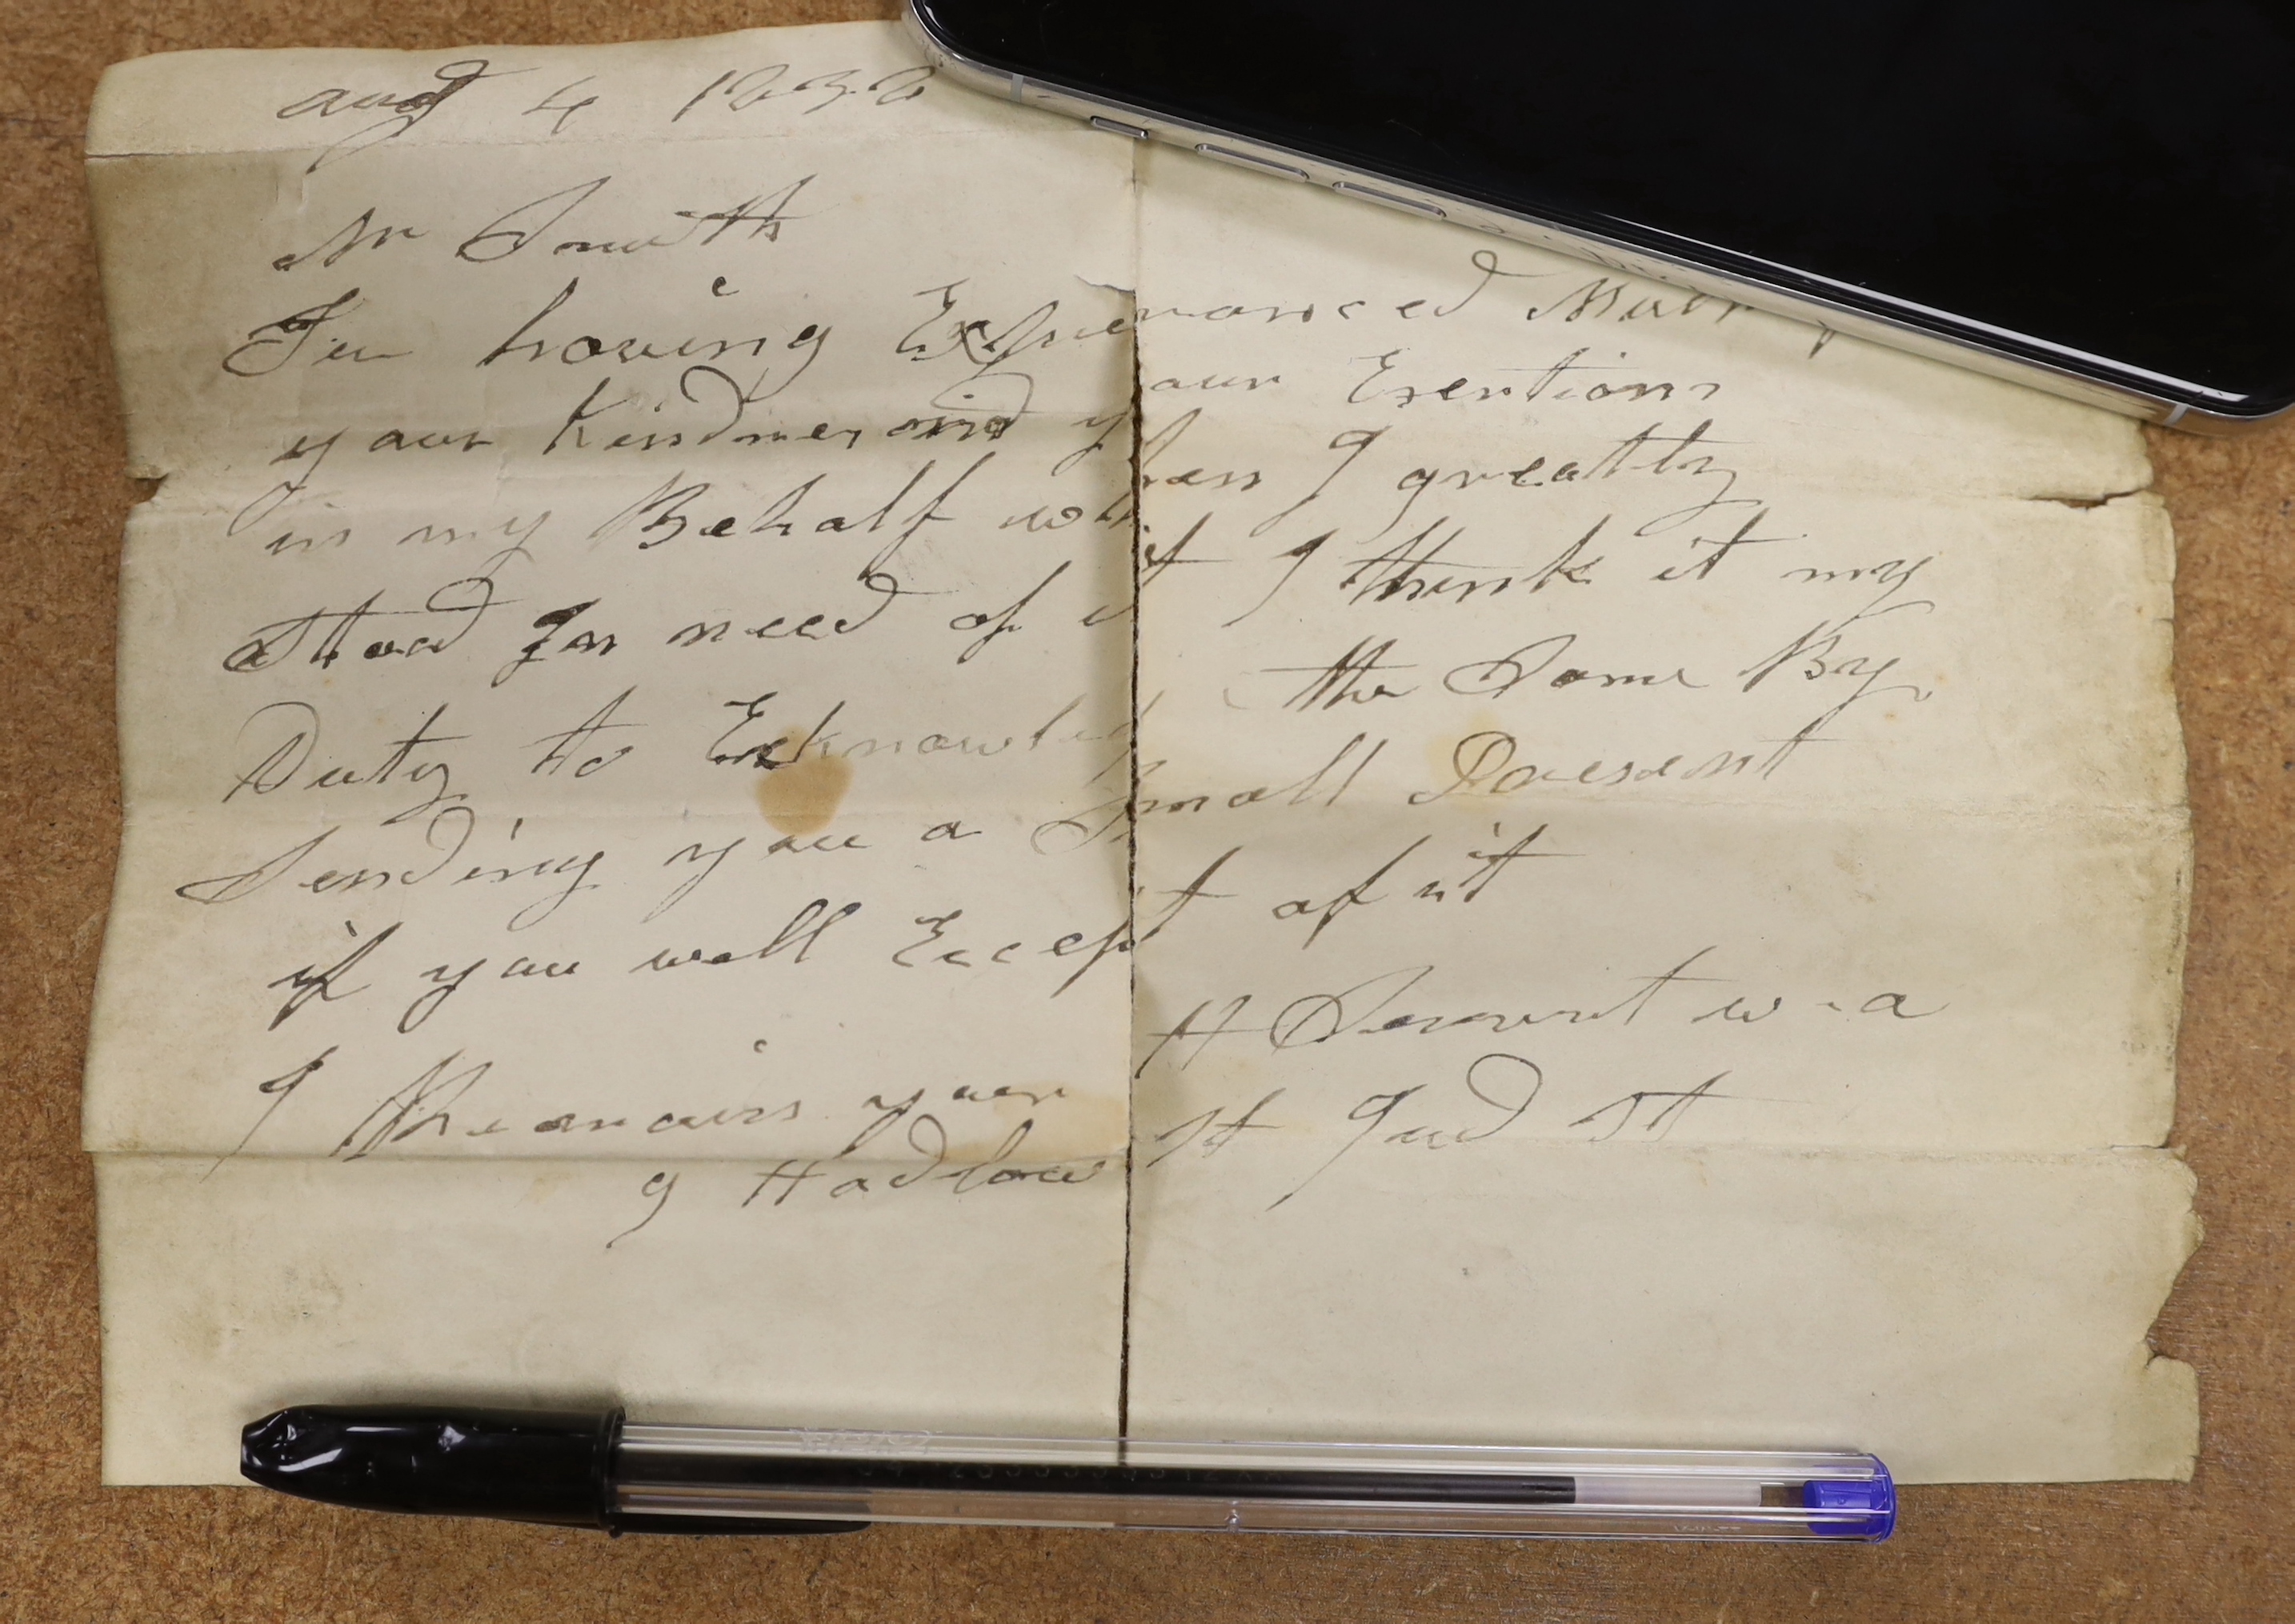 aug 4 1838
Mr Smith
Sir having Experanced
your Kindnes and your Exertions
in my Behalf when I greatly
Stood In need of it I think it my
Duty to Ecknowledg the Same By
Sending you a Small Present
if you will Eccept of it
I Remain your H Servent
g Hadlow St Jud St